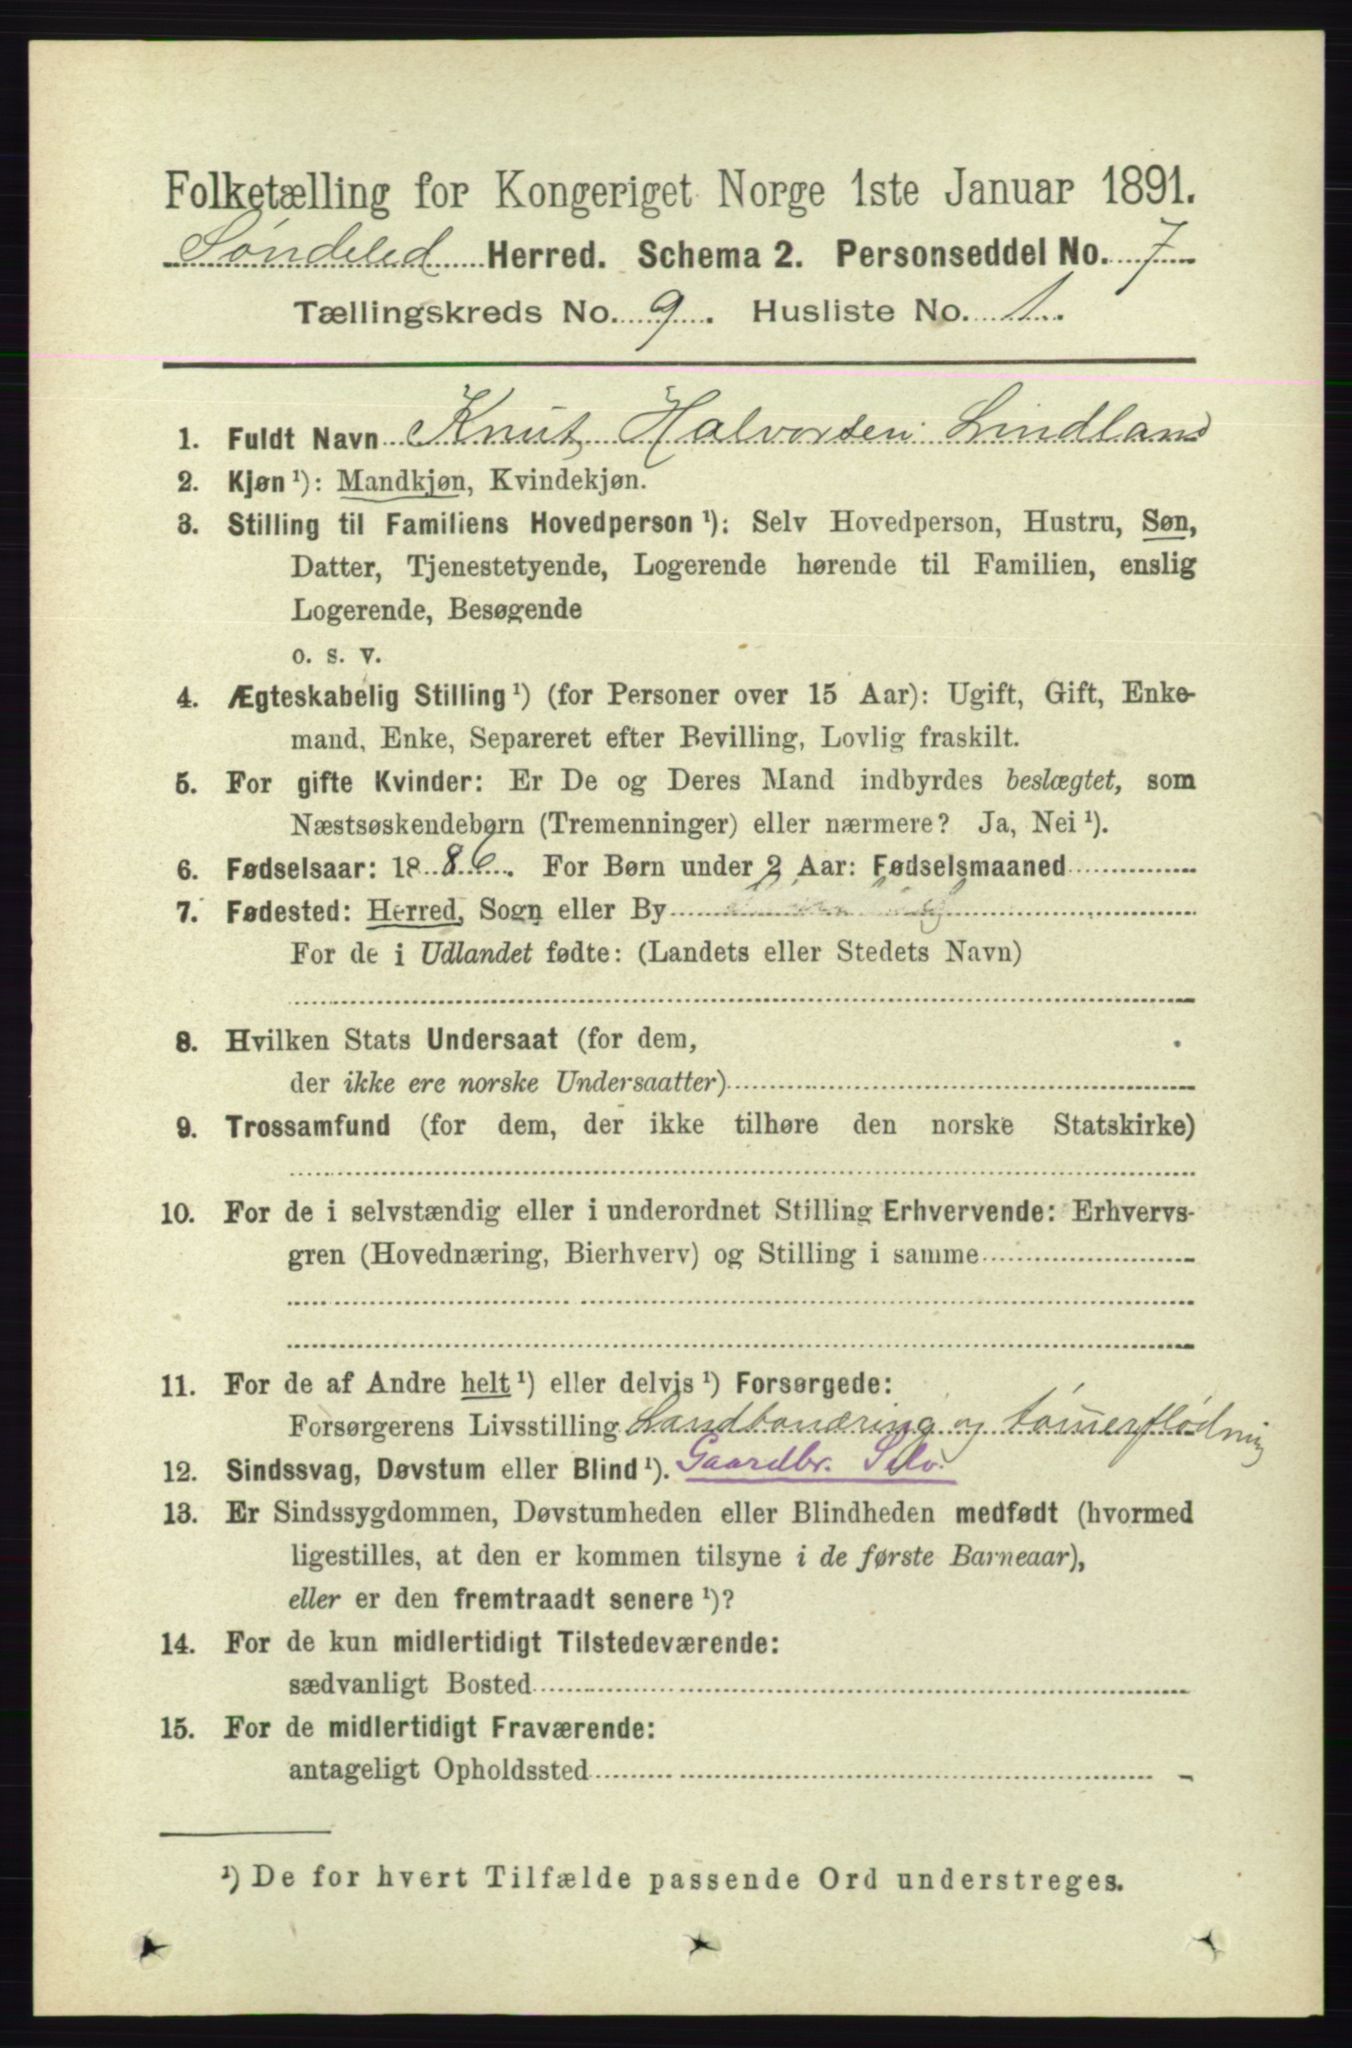 Folketælling for Kongeriget Norge 1ste Januar 1891.
Søndeled Herred. Schema 2. Personseddel No. 7
Tællingskreds No. 9. Husliste No. 1.
1. Fuldt Navn Knut Halvorsen Lindland
2. Kjøn ¹): Mandkjøn, Kvindekjøn.
3. Stilling til Familiens Hovedperson ¹): Selv Hovedperson, Hustru, Søn,
Datter, Tjenestetyende, Logerende hørende til Familien, enslig
Logerende, Besøgende
o. s. v.
4. Ægteskabelig Stilling ¹) (for Personer over 15 Aar): Ugift, Gift, Enke-
mand, Enke, Separeret efter Bevilling, Lovlig fraskilt.
5. For gifte Kvinder: Er De og Deres Mand indbyrdes beslægtet, som
Næstsøskendebørn (Tremenninger) eller nærmere? Ja, Nei ¹).
6. Fødselsaar: 1886. For Børn under 2 Aar: Fødselsmaaned
7. Fødested: Herred, Sogn eller By
For de i Udlandet fødte: (Landets eller Stedets Navn)
8. Hvilken Stats Undersaat (for dem,
der ikke ere norske Undersaatter)
9. Trossamfund (for dem, der ikke tilhøre den norske Statskirke)
10. For de i selvstændig eller i underordnet Stilling Erhvervende: Erhvervs-
gren (Hovednæring, Bierhverv) og Stilling i samme
11. For de af Andre helt ¹) eller delvis ¹) Forsørgede:
Forsørgerens Livsstilling Landbonæring og tømerflødning
12. Sindssvag, Døvstum eller Blind ¹). Gaardbr. Selv.
13. Er Sindssygdommen, Døvstumheden eller Blindheden medfødt (hvormed
ligestilles, at den er kommen tilsyne i de første Barneaar),
eller er den fremtraadt senere ¹)?
14. For de kun midlertidigt Tilstedeværende:
sædvanligt Bosted
15. For de midlertidigt Fraværende:
antageligt Opholdssted
¹) De for hvert Tilfælde passende Ord understreges.